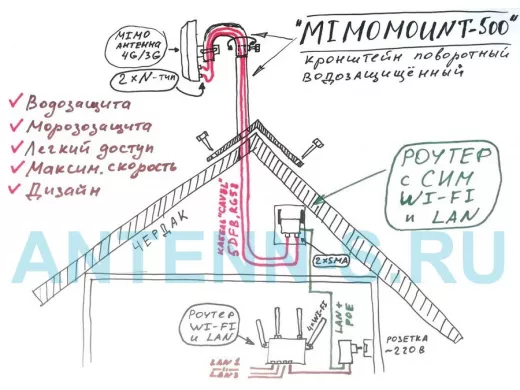 "MIMOMOUNT-500"
кронштейн поворотный
водозащищённый
MIMO
АНТЕННА
4G/3G
2×N-тип
✓ Водозащита
✓ Морозозащита
✓ Легкий доступ
✓ Максим. скорость
✓ Дизайн
РОУТЕР
с СИМ
WI-FI
и LAN
ЧЕРДАК
КАБЕЛЬ "CAVEL"
5DFB, RG58
2×SMA
ANTENN-S.RU
РОУТЕР
WI-FI
и LAN
LAN +
POE
РОЗЕТКА
~220В
LAN1